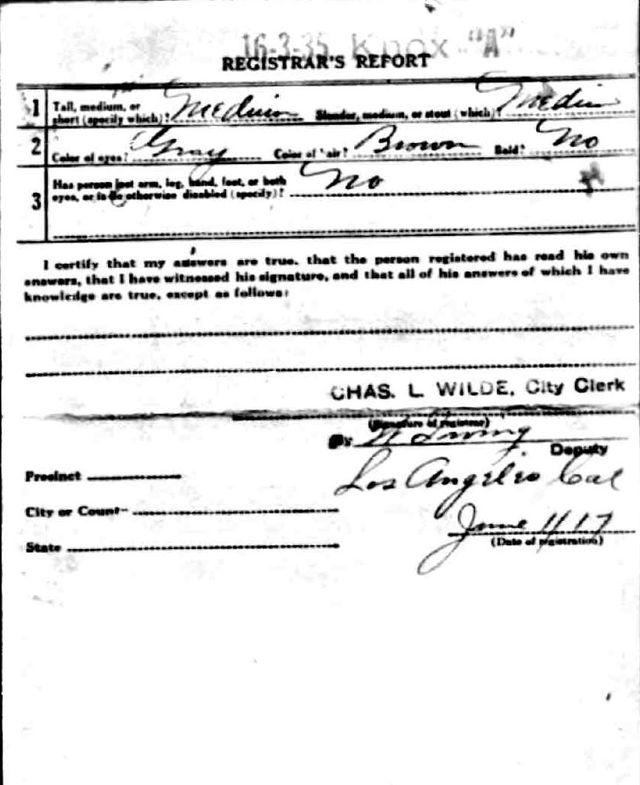 16-3-35 Knox "A"
REGISTRAR'S REPORT
1 Tall, medium, or short (specify which)? Medium Slender, medium, or stout (which)? Medium
2 Color of eyes? Gray Color of hair? Brown Bald? No
3 Has person lost arm, leg, hand, foot, or both
eyes, or is he otherwise disabled (specify)? No
I certify that my answers are true, that the person registered has read his own
answers, that I have witnessed his signature, and that all of his answers of which I have
knowledge are true, except as follows:
CHAS. L. WILDE, City Clerk
(Signature of registrar)
By
Deputy
Precinct
Los Angeles Cal
City or County
June 1/17
(Date of registration)
State